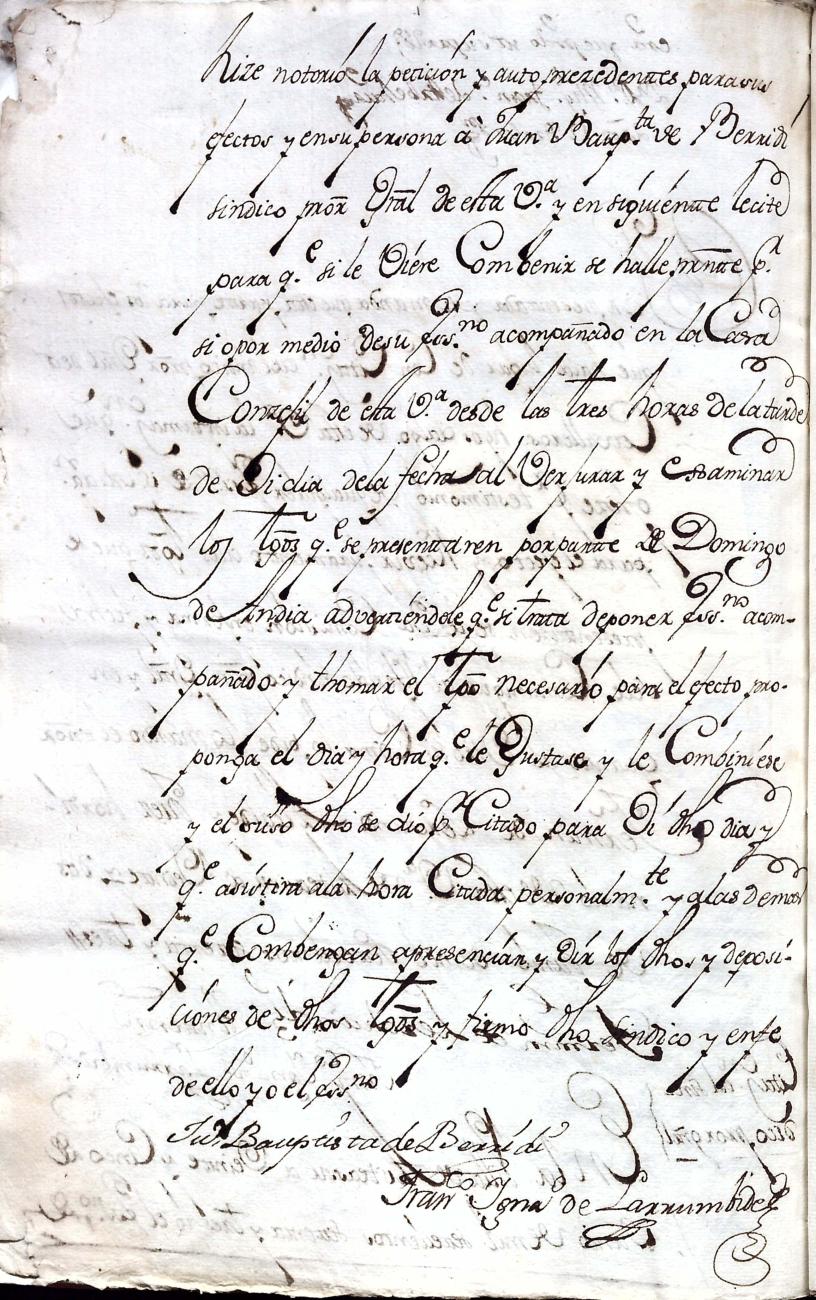 hize notorió la petición y auto prezedenttes para sus
efectos y en su persona a Juan Baup.ta de Berridi
sindico pror Gral de esta V.ª y en siguiente le cite
para q.e si le Viere Combenir se halle press.tte p.r
si o por medio de su Ess.no acompañado en la Casa
Conzejil de esta V.ª desde las tres horas de la tarde
de Di dia dela fecha al Ver jurar y Examinar
los tgos q.e se presenttaren por partte de Domingo
de Andia advertiéndole q.e si trata de poner Ess.no acom-
pañado y thomar el tpo necesario para el efecto pro-
ponga el dia y hora q.e le Gustase y le Combiniese
y el suso dho se dió p.r Citado para Di dho dia y
q.e asistira ala hora Citada personalm.te y alas demas
q.e Combengan apresenciar y Oír los dhos y deposi-
ciones de dhos tgos y firmo dho Sindico y en fe
de ello yo el Ess.no
Ju.n Bauptista de Berridi
Fran.co Ygna.o de Larrumbide